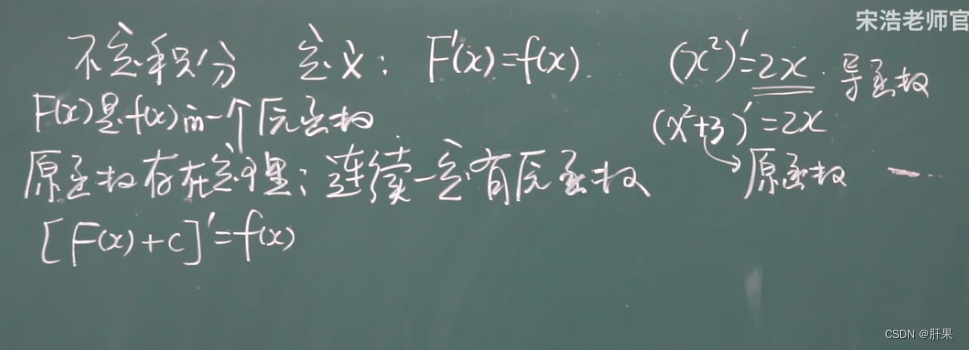 宋浩老师官
不定积分 定义: F'(x)=f(x). (x²)'=2x. 导函数
F(x)是f(x)的一个原函数 (x²+3)'=2x
原函数存在定理: 连续一定有原函数 原函数
[F(x)+C]'=f(x)
CSDN @肝果